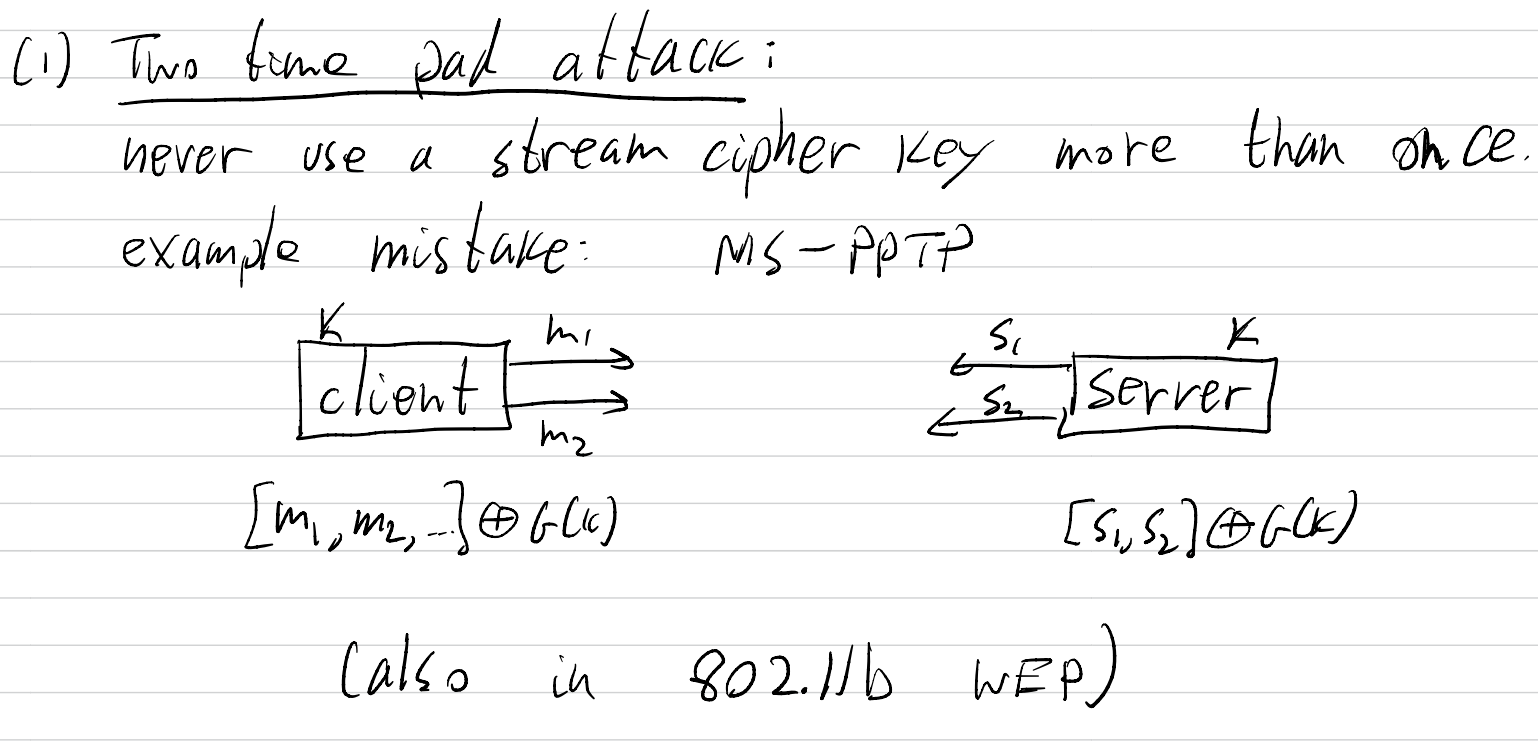 (1) Two time pad attack:
never use a stream cipher key more than once.
example mistake: MS-PPTP
K m1 S1 K
client server
m2 S2
[m1, m2, ...] ⊕ G(K) [S1, S2] ⊕ G(K)
(also in 802.11b WEP)